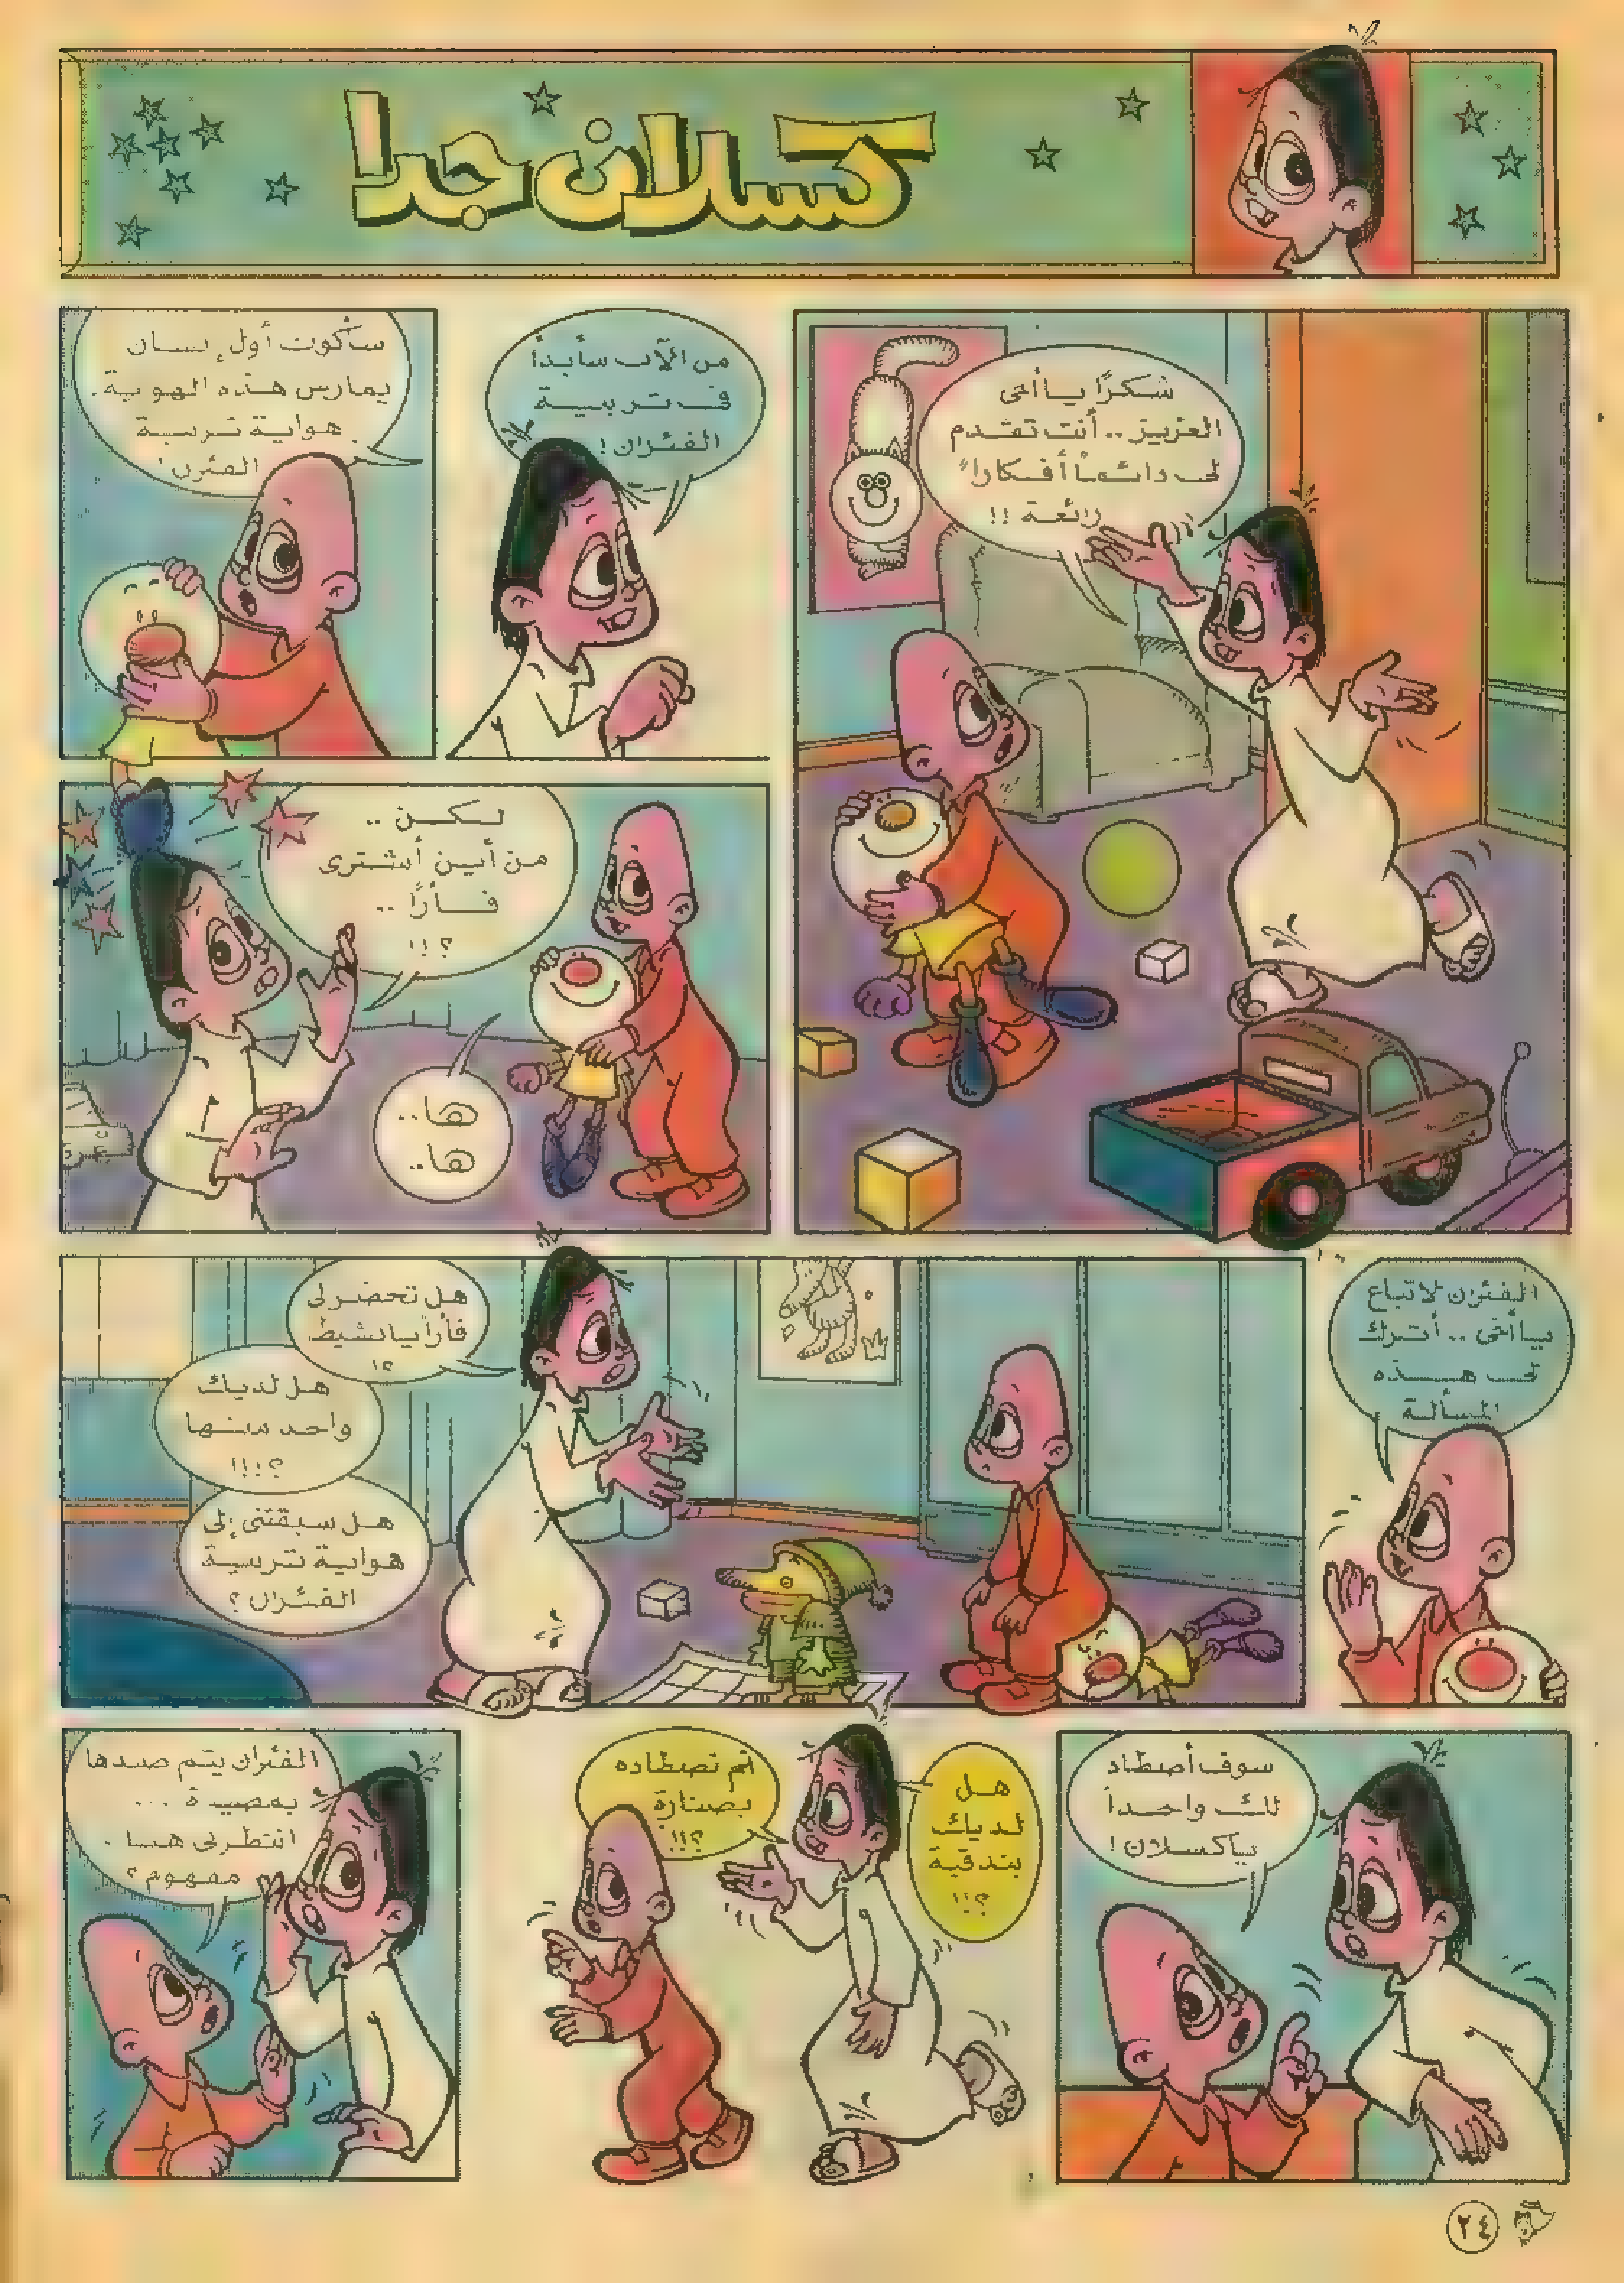 كسلان جدا
شكرًا يا أخى
العزيز .. أنت تقدم
لى دائمًا أفكارا"
رائعة !!
من الآن سأبدأ
فى تربية
الفئران !
سأكون أول إنسان
يمارس هذه الهوية.
هواية تربية
الفئرن !
لكن ..
من أين أشترى
فأرًا ..
؟!!
ها..
ها..
الفئرن لا تباع
يا أخى .. أترك
لى هذه
المسألة
هل تحضر لى
فأرًا يا نشيط
؟!
هل لديك
واحد منها
؟!!!
هل سبقتنى إلى
هواية تربية
الفئران ؟
سوف أصطاد
لك واحدًا
يا كسلان !
هل
لديك
بندقية
؟!!
أم تصطاده
بصنارة
؟!!
الفئران يتم صيدها
بمصيدة ...
انتظرنى هنا .
مفهوم ؟
٢٤